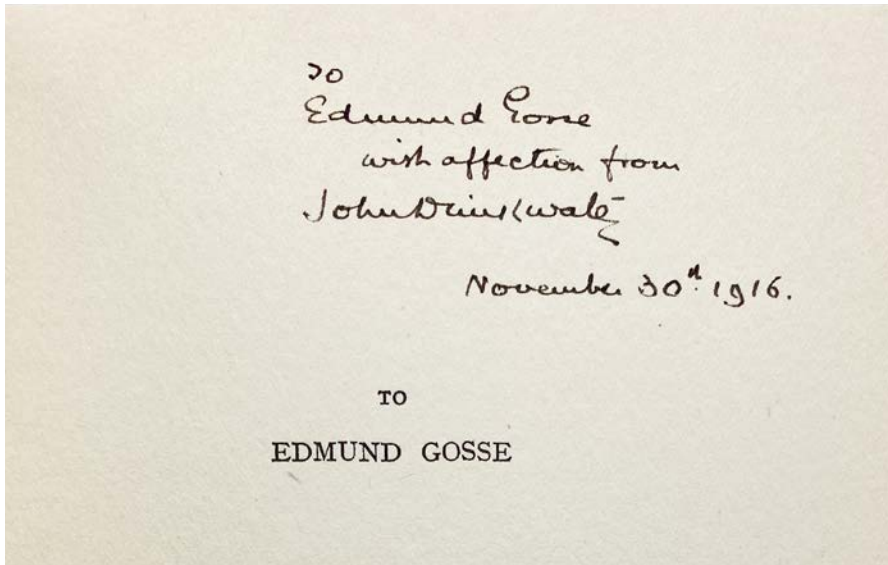 To
Edmund Gosse
with affection from
John Drinkwater
November 30th 1916.
TO
EDMUND GOSSE